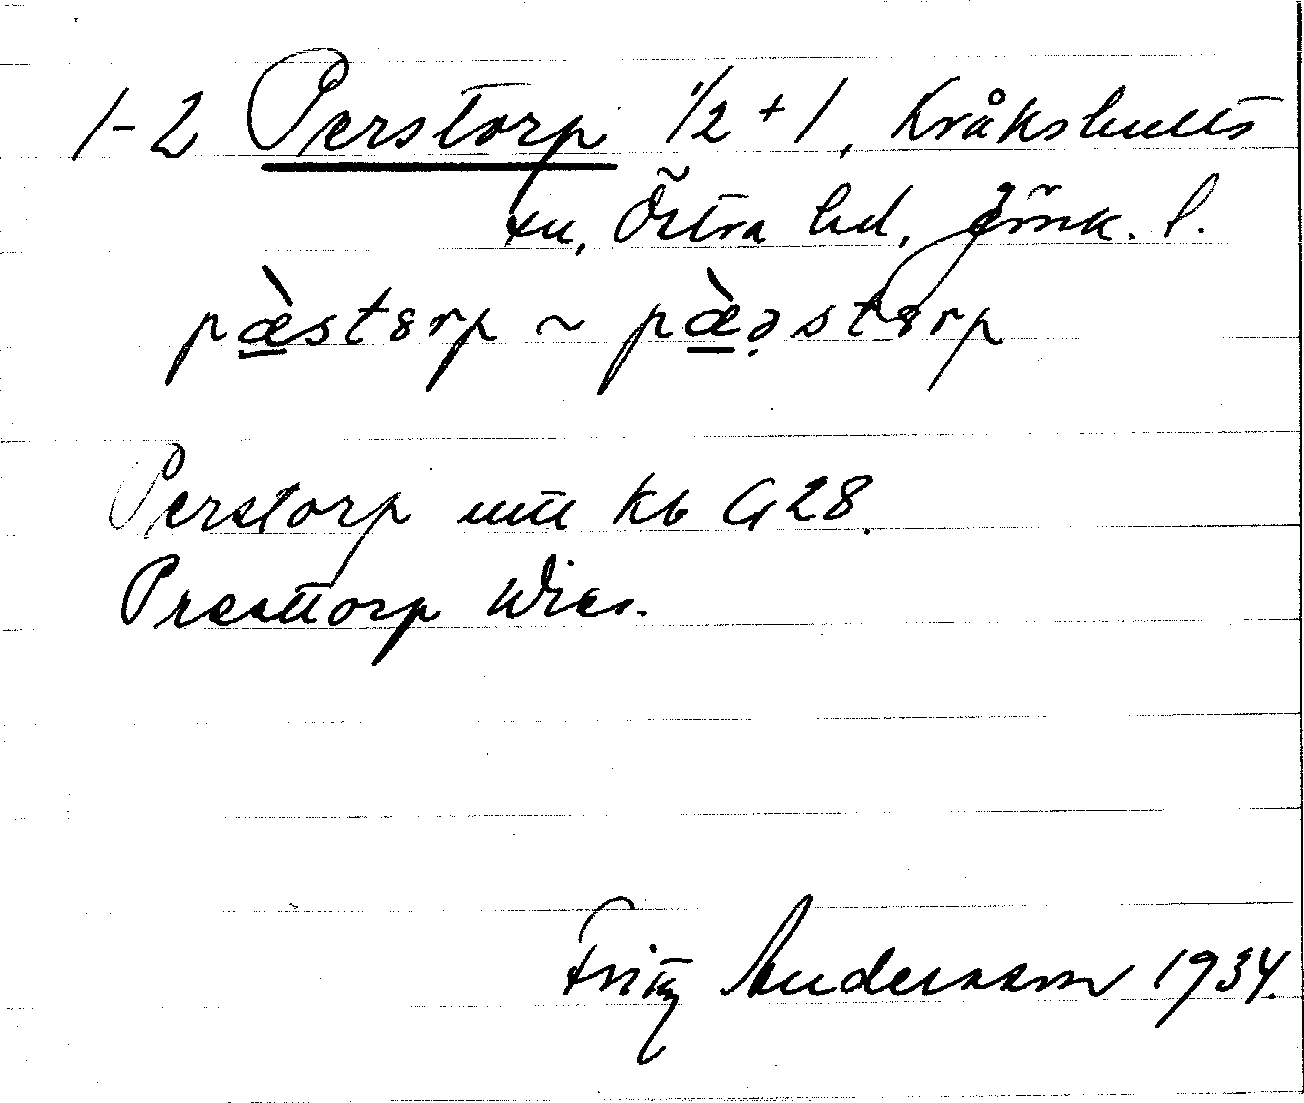 1-2 Perstorp 1/2 + 1, Kråkshults
sn, Östra hd, Jönk. l.
pæ̀stɜrp ~ pæ̀ə̣stɜrp
Perstorp utt Kb G 28.
Præsttorp Wies.
Fritz Andersson 1934.